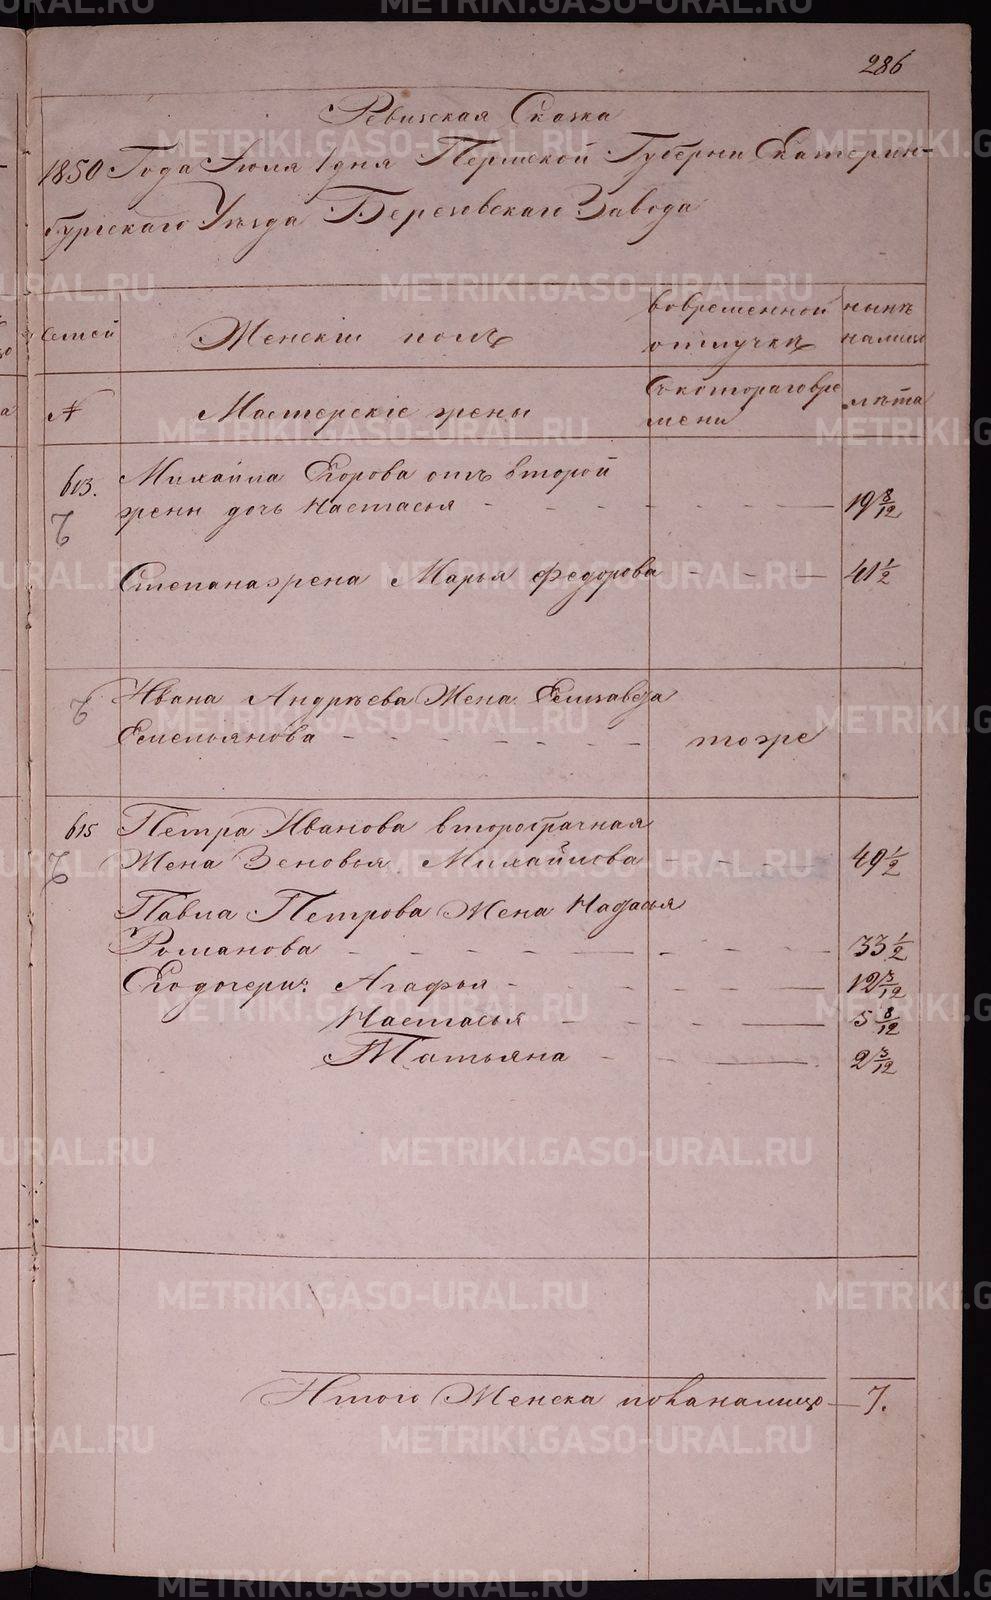 286
Ревизская Сказка
1850 Года Июля 1 дня Пермской Губерни Екатерин-
бургскаго Уѣзда Березовскаго Завода
семей
Женскiй полъ
вовременной
отлучкѣ
нынѣ
налицо
№
Мастерскiе жены
Съкотораговре
мени
лѣта
613.
Михайла Егорова отъ второй
жены дочь Настасья - - - - - - 19 8/12
Степана жена Марья Федорова - - - 41 1/2
Ивана Андрѣева Жена Елизавета
Емельянова - - - - - - - тоже
615
Петра Иванова второбрачная
Жена Зеновья Михайлова - - - - 49 1/2
Павла Петрова Жена Настасья
Романова - - - - - - - 33 1/2
Егодочери: Агафья - - - - - 12 3/12
Настасья - - - - 5 8/12
Татьяна - - - - 2 3/12
Итого Женска пола налицо - 7.
METRIKI.GASO-URAL.RU